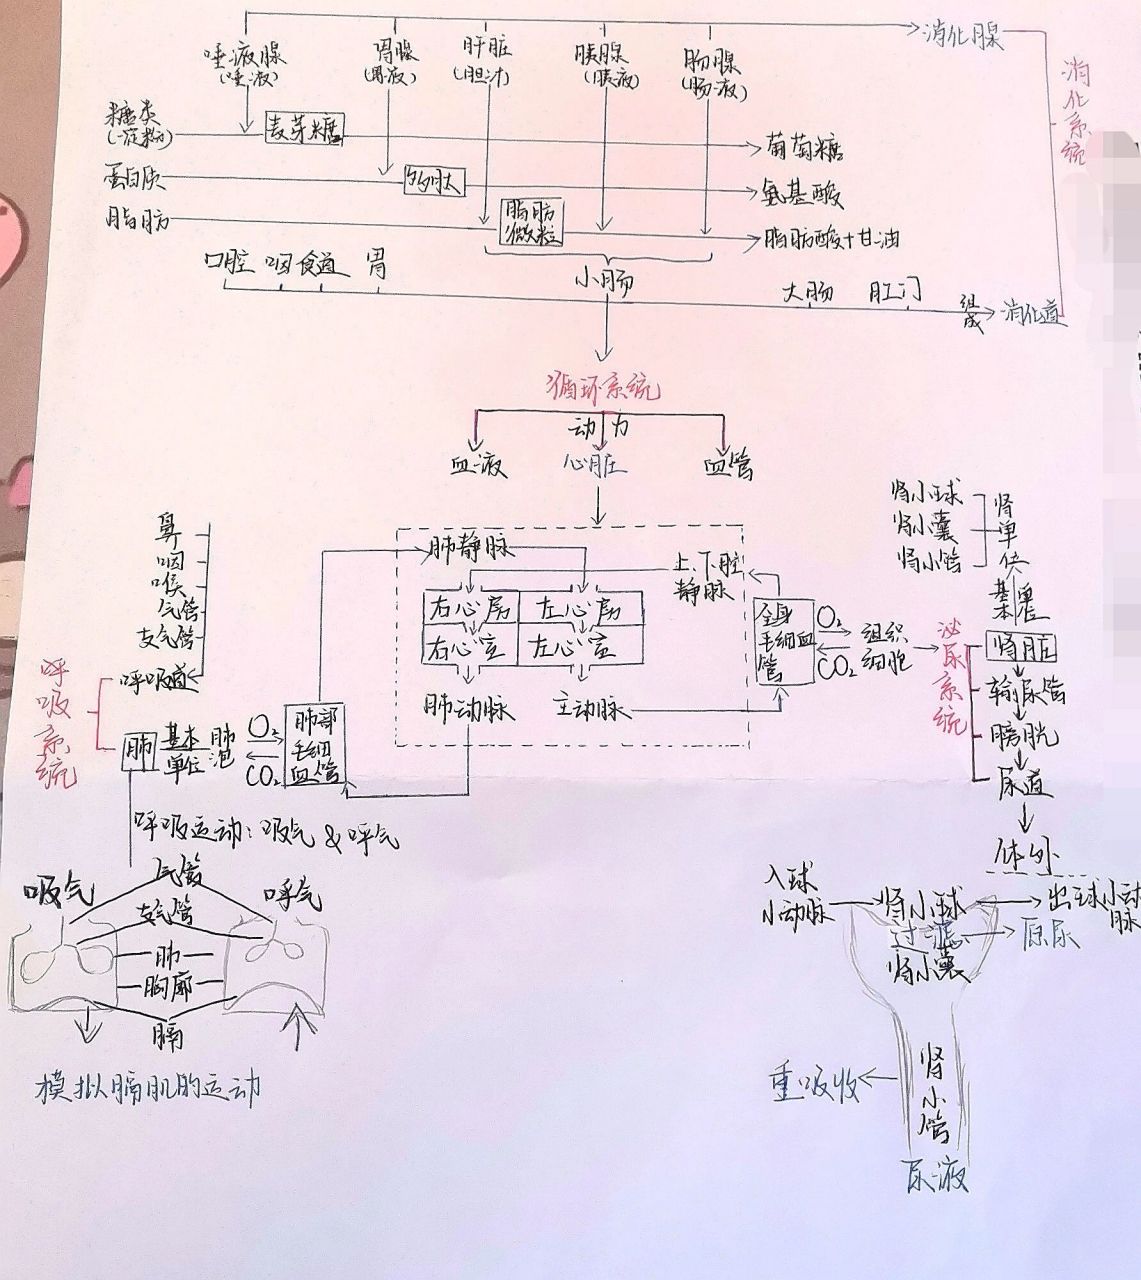 消化腺
唾液腺
(唾液)
胃腺
(胃液)
肝脏
(胆汁)
胰腺
(胰液)
肠腺
(肠液)
消化系统
糖类
(淀粉)
麦芽糖
葡萄糖
蛋白质
多肽
氨基酸
脂肪
脂肪
微粒
脂肪酸+甘油
口腔 咽 食道 胃
小肠
大肠 肛门
组成
消化道
循环系统
动力
血液 心脏 血管
肾小球
肾小囊
肾小管
肾单位
基本单位
鼻
咽
喉
气管
支气管
呼吸道
呼吸系统
肺
基本
单位
肺泡
O₂
CO₂
肺部
毛细
血管
肺静脉
上、下腔
静脉
右心房 左心房
右心室 左心室
肺动脉 主动脉
全身
毛细血
管
O₂
CO₂
组织
细胞
泌尿系统
肾脏
输尿管
膀胱
尿道
体外
呼吸运动:吸气&呼气
吸气
气管
呼气
支气管
肺
胸廓
膈
模拟膈肌的运动
入球
小动脉
肾小球
出球小动
脉
过滤
原尿
肾小囊
重吸收
肾小管
尿液